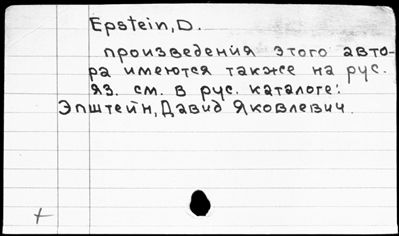 Epstein, D.
произведения этого авто-
ра имеются также на рус.
яз. см. в рус. каталоге:
Эпштейн, Давид Яковлевич.
+